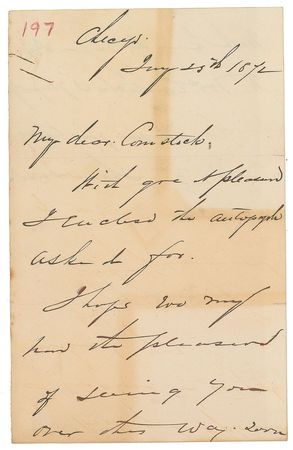 197
Chicago.
Jny 25th 1872
My dear Comstock,
With gret pleasure
I enclose the autograph
asked for.
I hope we may
have the pleasure
of seeing you
over this way soon